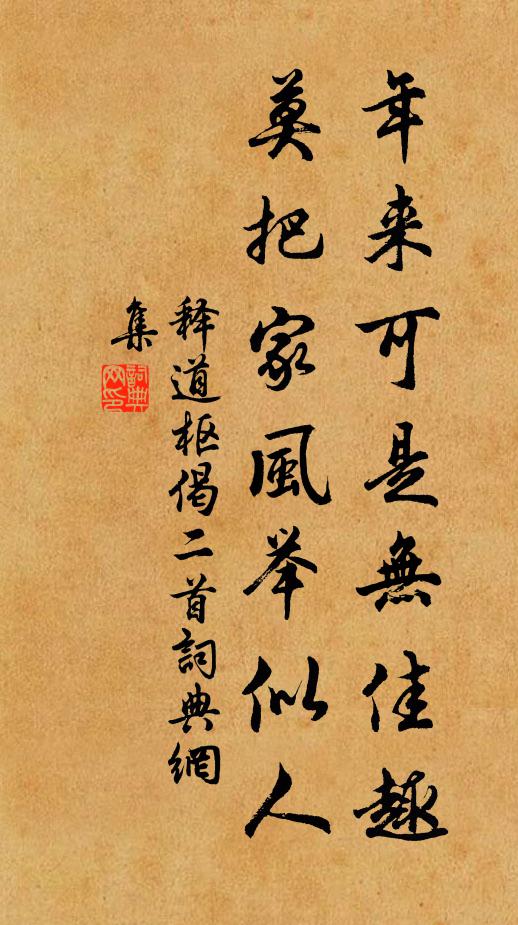 年来可是無佳趣
莫把家風举似人
释道枢偈二首詞典網
集
詞典網印